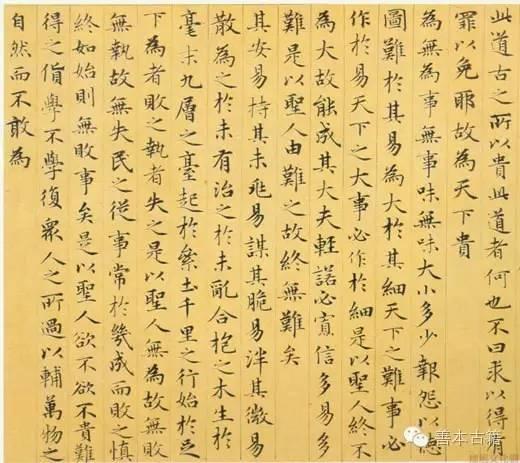 此道古之所以貴此道者何也不曰求以得有
罪以免耶故為天下貴
為無為事無事味無味大小多少報怨以德
圖難於其易為大於其細天下之難事必
作於易天下之大事必作於細是以聖人終不
為大故能成其大夫輕諾必寡信多易多
難是以聖人由難之故終無難矣
其安易持其未兆易謀其脆易泮其微易
散為之於未有治之於未亂合抱之木生於
毫末九層之臺起於絫土千里之行始於足
下為者敗之執者失之是以聖人無為故無敗
無執故無失民之從事常於幾成而敗之慎
終如始則無敗事矣是以聖人欲不欲不貴難
得之貨學不學復眾人之所過以輔萬物之
自然而不敢為
善本古籍